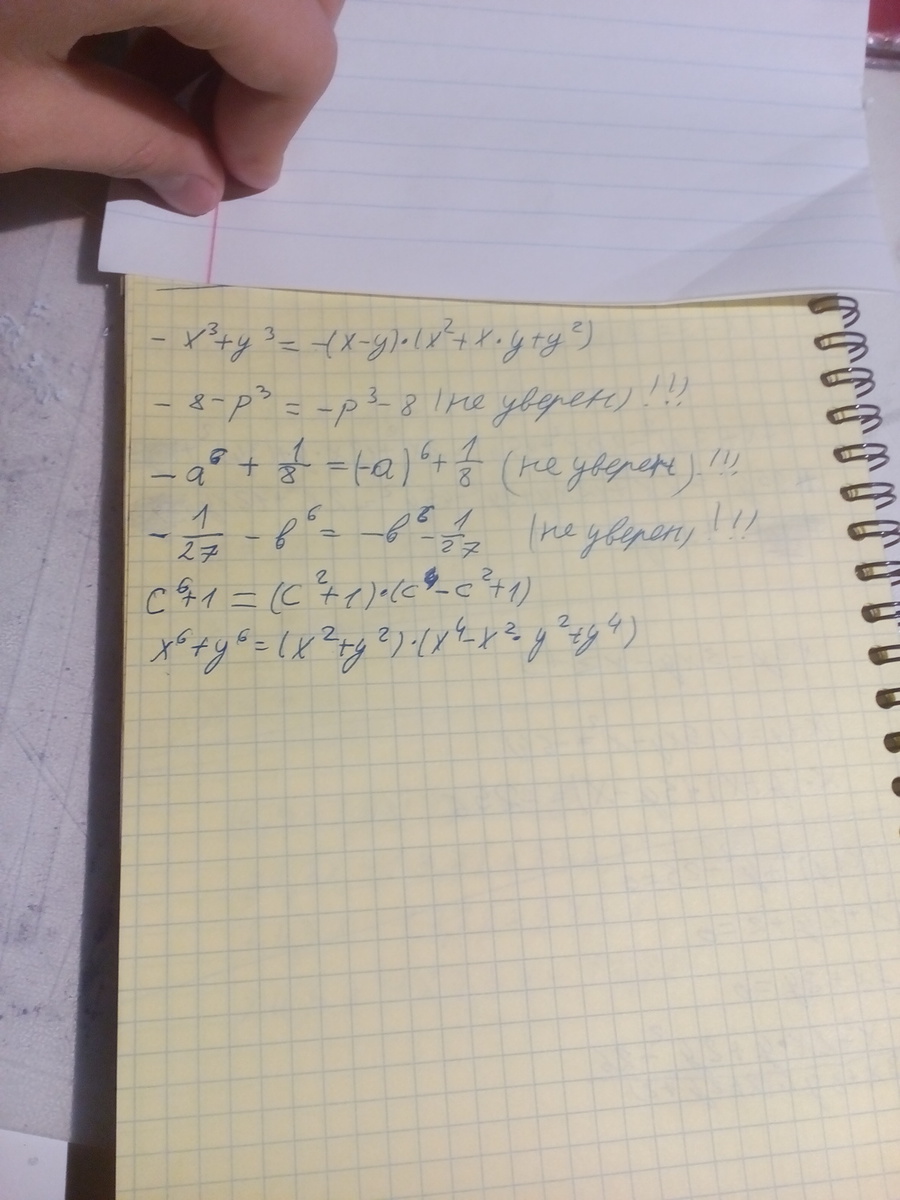 - x³+y³ = -(x-y)·(x²+x·y+y²)
- 8-p³ = -p³-8 (не уверен) !!!
- a⁶ + 1/8 = (-a)⁶ + 1/8 (не уверен) !!!
- 1/27 - b⁶ = -b⁶ - 1/27 (не уверен) !!!
c⁶+1 = (c²+1)·(c⁴-c²+1)
x⁶+y⁶ = (x²+y²)·(x⁴-x²·y²+y⁴)